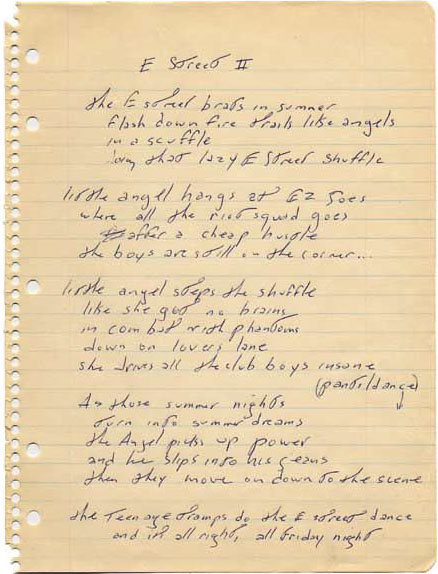 E Street II
the E street brats in summer
flash down fire trails like angels
in a scuffle
that lazy E Street Shuffle
little angel hangs at EZ Joes
where all the riot squad goes
after a cheap hustle
the boys are still on the corner...
little angel steps the shuffle
like she got no brains
in combat with phantoms
down on lovers lane
she drives all the club boys insane
(pants/dance)
As those summer nights
turn into summer dreams
the Angel picks up power
and he slips into his jeans
then they move on down to the scene
the Teenage tramps do the E street dance
and it all right, all friday night